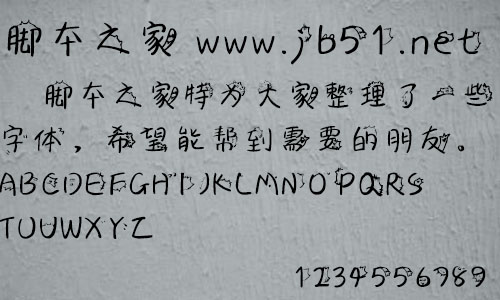 脚本之家 www.jb51.net
脚本之家特为大家整理了一些
字体，希望能帮到需要的朋友。
ABCDEFGHIJKLMNOPQRS
TUUWXYZ
1234556989